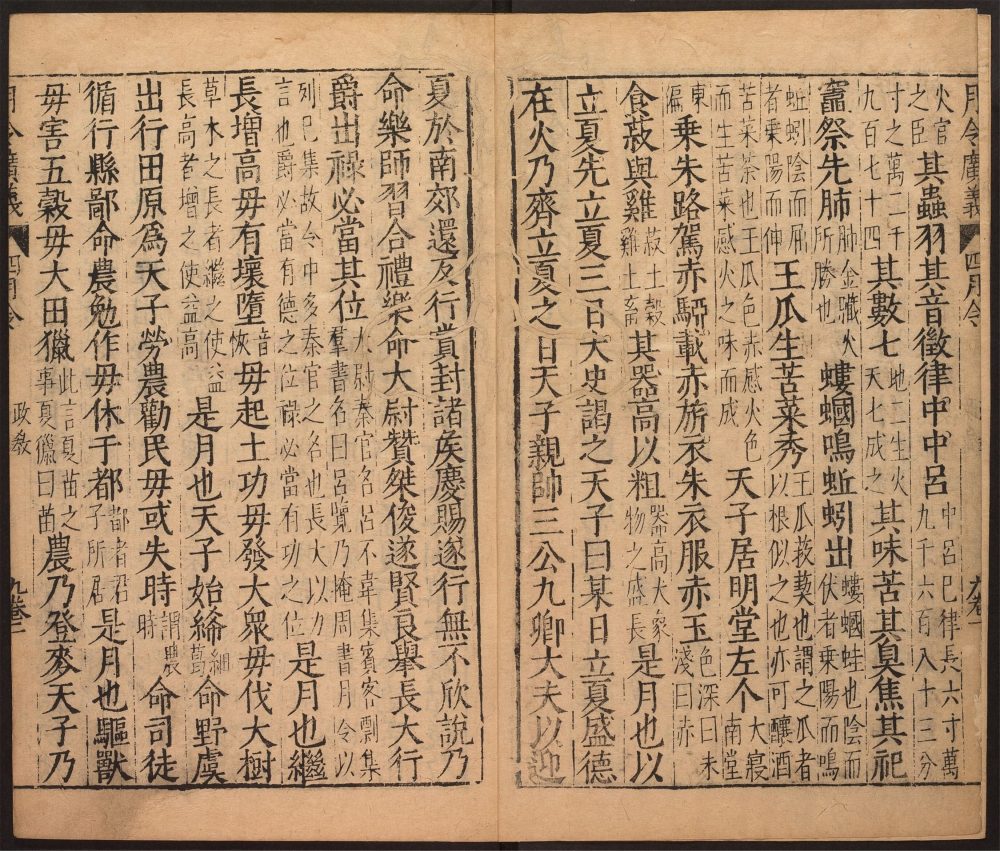 月令廣義 四月令
火官之臣其蟲羽其音徵律中中呂中呂巳律長六寸萬九千六百八十三分
寸之萬二千九百七十四其數七地二生火天七成之其味苦其臭焦其祀
竈祭先肺肺金臟火所勝也螻蟈鳴蚯蚓出螻蟈蛙也陰而伏者乘陽而鳴
蚯蚓陰而屈者乘陽而伸王瓜生苦菜秀王瓜菝葜也謂之瓜者以根似之也亦可釀酒
苦菜荼也王瓜色赤感火色而生苦菜感火之味而成天子居明堂左个大寢南堂
東偏乘朱路駕赤騮載赤旂衣朱衣服赤玉色深曰朱淺曰赤
食菽與雞菽土穀雞土畜其器高以粗器高大象物之盛長是月也以
立夏先立夏三日大史謁之天子曰某日立夏盛德
在火乃齊立夏之日天子親帥三公九卿大夫以迎
夏於南郊還反行賞封諸侯慶賜遂行無不欣說乃
命樂師習合禮樂命大尉贊桀俊遂賢良舉長大行
爵出祿必當其位大尉秦官名呂不韋集賓客剽集羣書名曰呂覽乃掩周書月令以
列巳集故令中多秦官之名也長大以力言也爵必當有德之位祿必當有功之位是月也繼
長增高毋有壞墮音恢毋起土功毋發大眾毋伐大樹
草木之長者繼之使益長高者增之使益高是月也天子始絺細葛命野虞
出行田原為天子勞農勸民毋或失時謂農時命司徒
循行縣鄙命農勉作毋休于都都者君子所居是月也驅獸
毋害五穀毋大田獵此言夏苗之事夏獵曰苗農乃登麥天子乃
月令廣義 四月令 政敎 九卷一